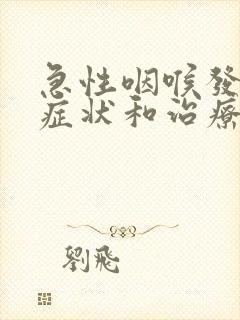 急性咽喉發
症狀和治療
劉飛